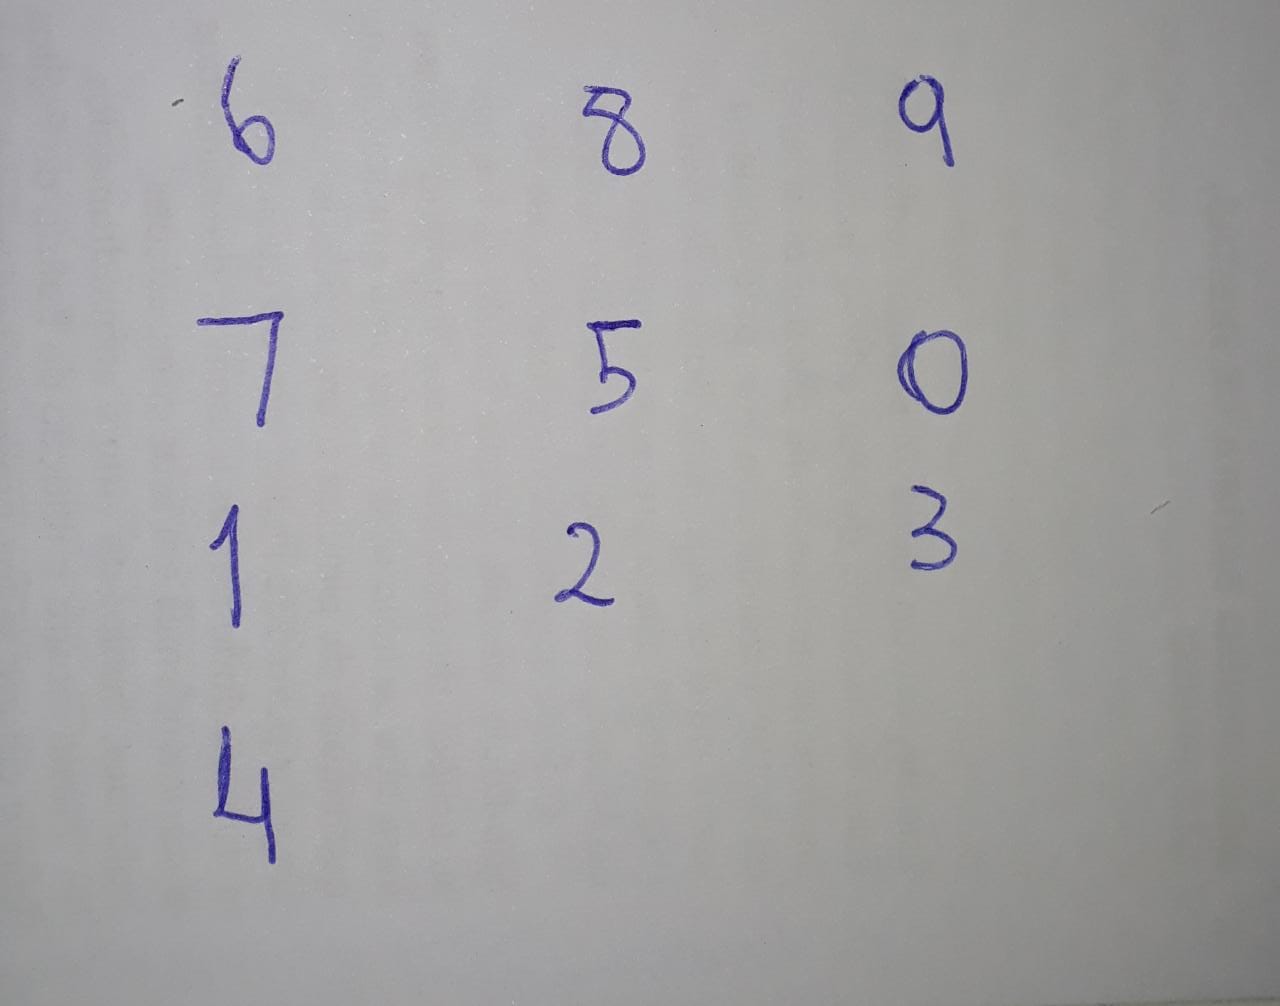 6 8 9
7 5 0
1 2 3
4